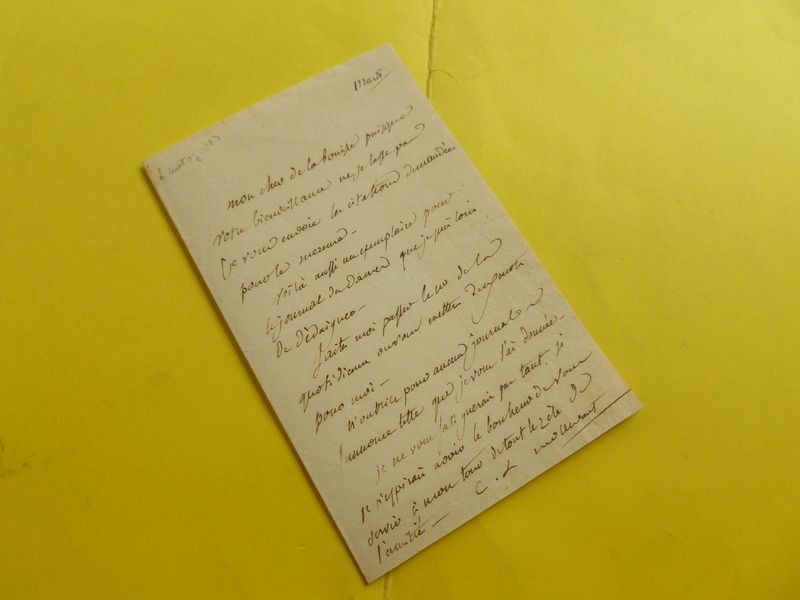 Mardi
mon cher de la bouisse puisque
votre bienveillance ne se lasse pas
je vous envoie les citations demandées
pour le mercure -
voilà aussi un exemplaire pour
le journal des dames que je suis loin
de dédaigner -
faites moi passer le no de la
quotidienne où vous mettez
pour moi -
n'oubliez pour aucun journal
l'annonce telle que je vous l'ai donnée -
je ne vous fatiguerais pas tant si
je n'espérais avoir le bonheur de vous
servir à mon tour de tout le zèle de
l'amitié -
C. L. mollevaut